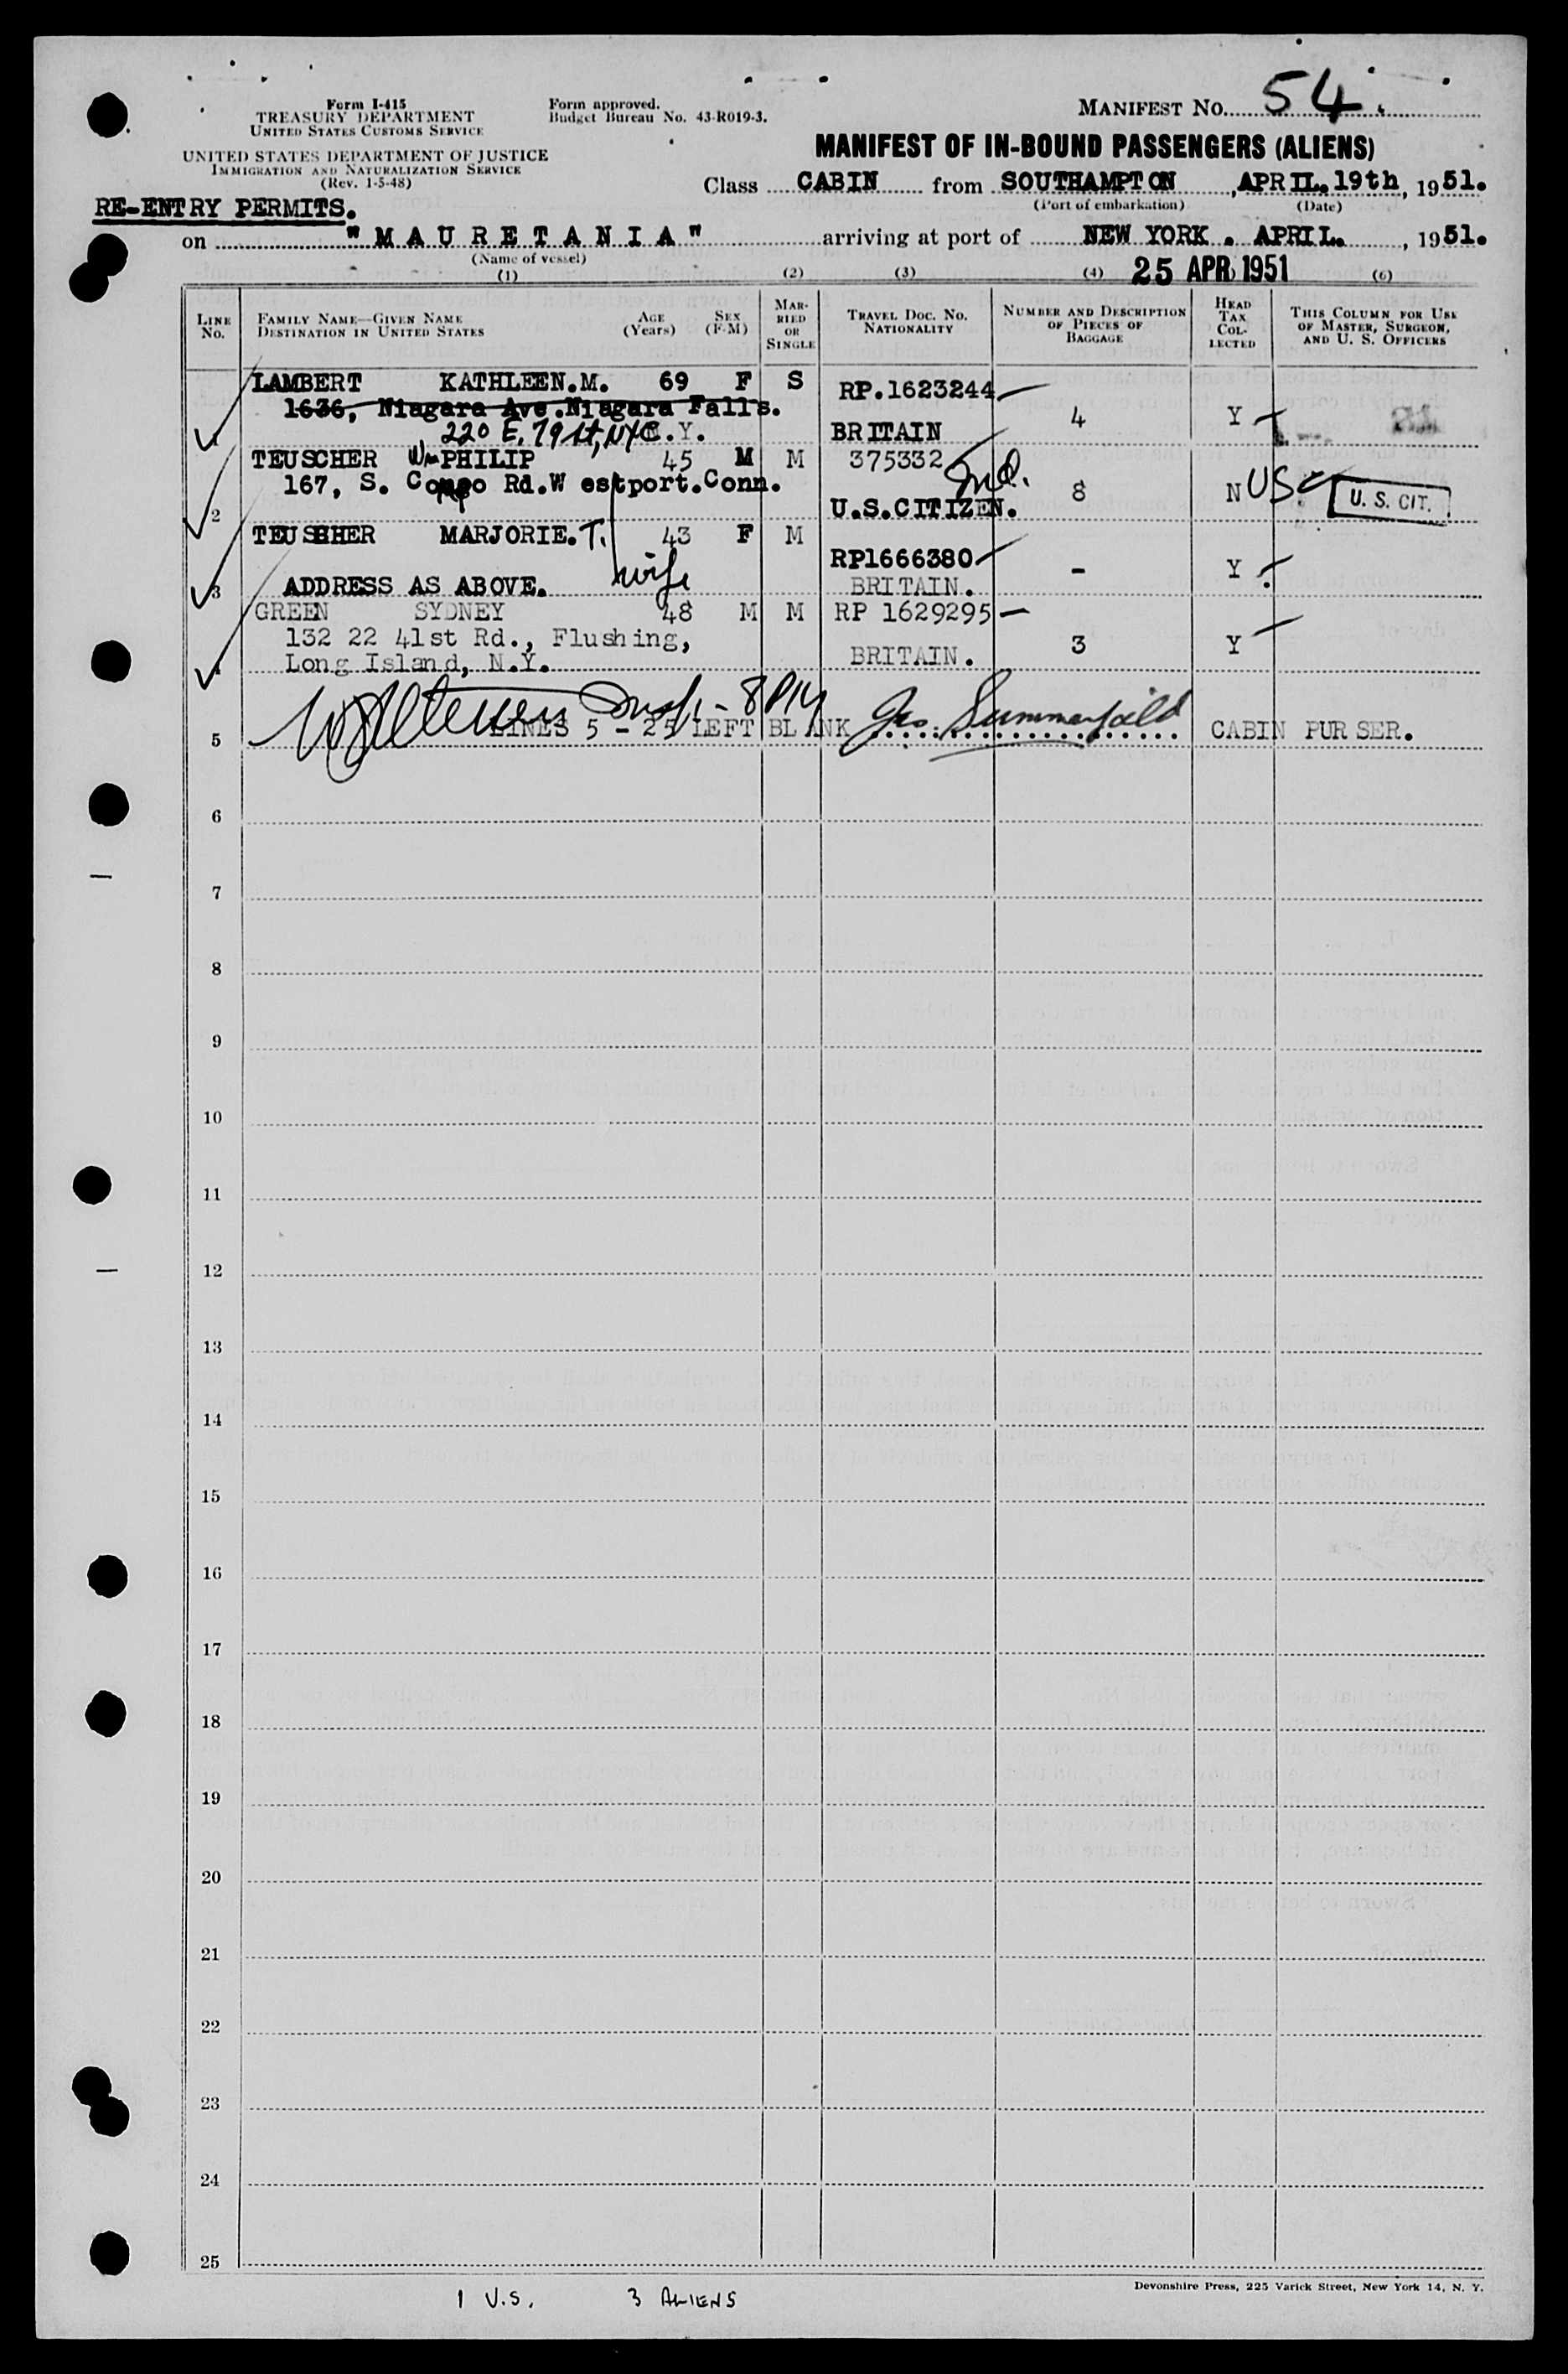 Form I-415
TREASURY DEPARTMENT
UNITED STATES CUSTOMS SERVICE
Form approved.
Budget Bureau No. 43-R019-3.
MANIFEST No. 54.
UNITED STATES DEPARTMENT OF JUSTICE
IMMIGRATION AND NATURALIZATION SERVICE
(Rev. 1-5-48)
MANIFEST OF IN-BOUND PASSENGERS (ALIENS)
Class CABIN from SOUTHAMPTON, APRIL. 19th, 1951.
(Port of embarkation) (Date)
RE-ENTRY PERMITS.
on "MAURETANIA" arriving at port of NEW YORK. APRIL., 1951.
(Name of vessel)
25 APR 1951
(1) (2) (3) (4) (6)
LINE No.
FAMILY NAME—GIVEN NAME
DESTINATION IN UNITED STATES
AGE (Years)
SEX (F-M)
MARRIED OR SINGLE
TRAVEL DOC. No. NATIONALITY
NUMBER AND DESCRIPTION OF PIECES OF BAGGAGE
HEAD TAX COLLECTED
THIS COLUMN FOR USE OF MASTER, SURGEON, AND U. S. OFFICERS
LAMBERT KATHLEEN.M. 69 F S RP.1623244
1636, Niagara Ave.Niagara Falls.
220 E. 79 St, NYC .Y. BRITAIN 4 Y
TEUSCHER Wm PHILIP 45 M M 375332
167, S. Compo Rd.Westport.Conn.
2 U.S.CITIZEN. 8 N USC U. S. CIT.
TEUSHER MARJORIE.T. 43 F M RP1666380
wife
3 ADDRESS AS ABOVE. BRITAIN. - Y
GREEN SYDNEY 48 M M RP 1629295
132 22 41st Rd., Flushing,
Long Island, N.Y. BRITAIN. 3 Y
5 LINES 5 - 25 LEFT BLANK Jas. Summerfield CABIN PURSER.
6
7
8
9
10
11
12
13
14
15
16
17
18
19
20
21
22
23
24
25
Devonshire Press, 225 Varick Street, New York 14, N. Y.
1 U.S. 3 ALIENS